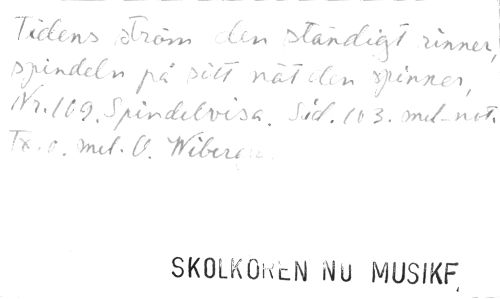 Tidens ström den ständigt rinner,
spindeln på sitt nät den spinner,
Nr. 109. Spindelvisa. Sid. 103. mel-not.
Tx. o. mel. O. Wiberg
SKOLKÖREN NU MUSIKF,